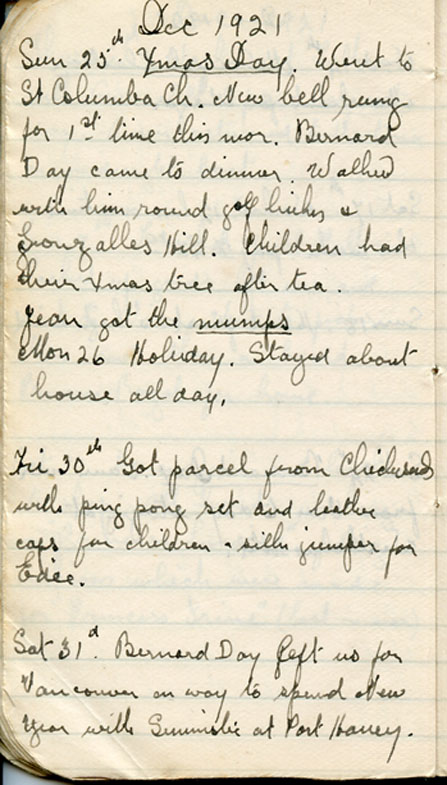 Dec 1921
Sun 25th. Xmas Day. Went to
St Columba Ch. New bell rung
for 1st time this mor. Bernard
Day came to dinner. Walked
with him round golf links &
Gonzalles Hill. Children had
their Xmas tree after tea.
Jean got the mumps
Mon 26 Holiday. Stayed about
house all day.
Fri 30th Got parcel from
with ping pong set and leather
caps for children & silk jumper for
Edie.
Sat 31st. Bernard Day left us for
Vancouver on way to spend New
Year with at Port Haney.